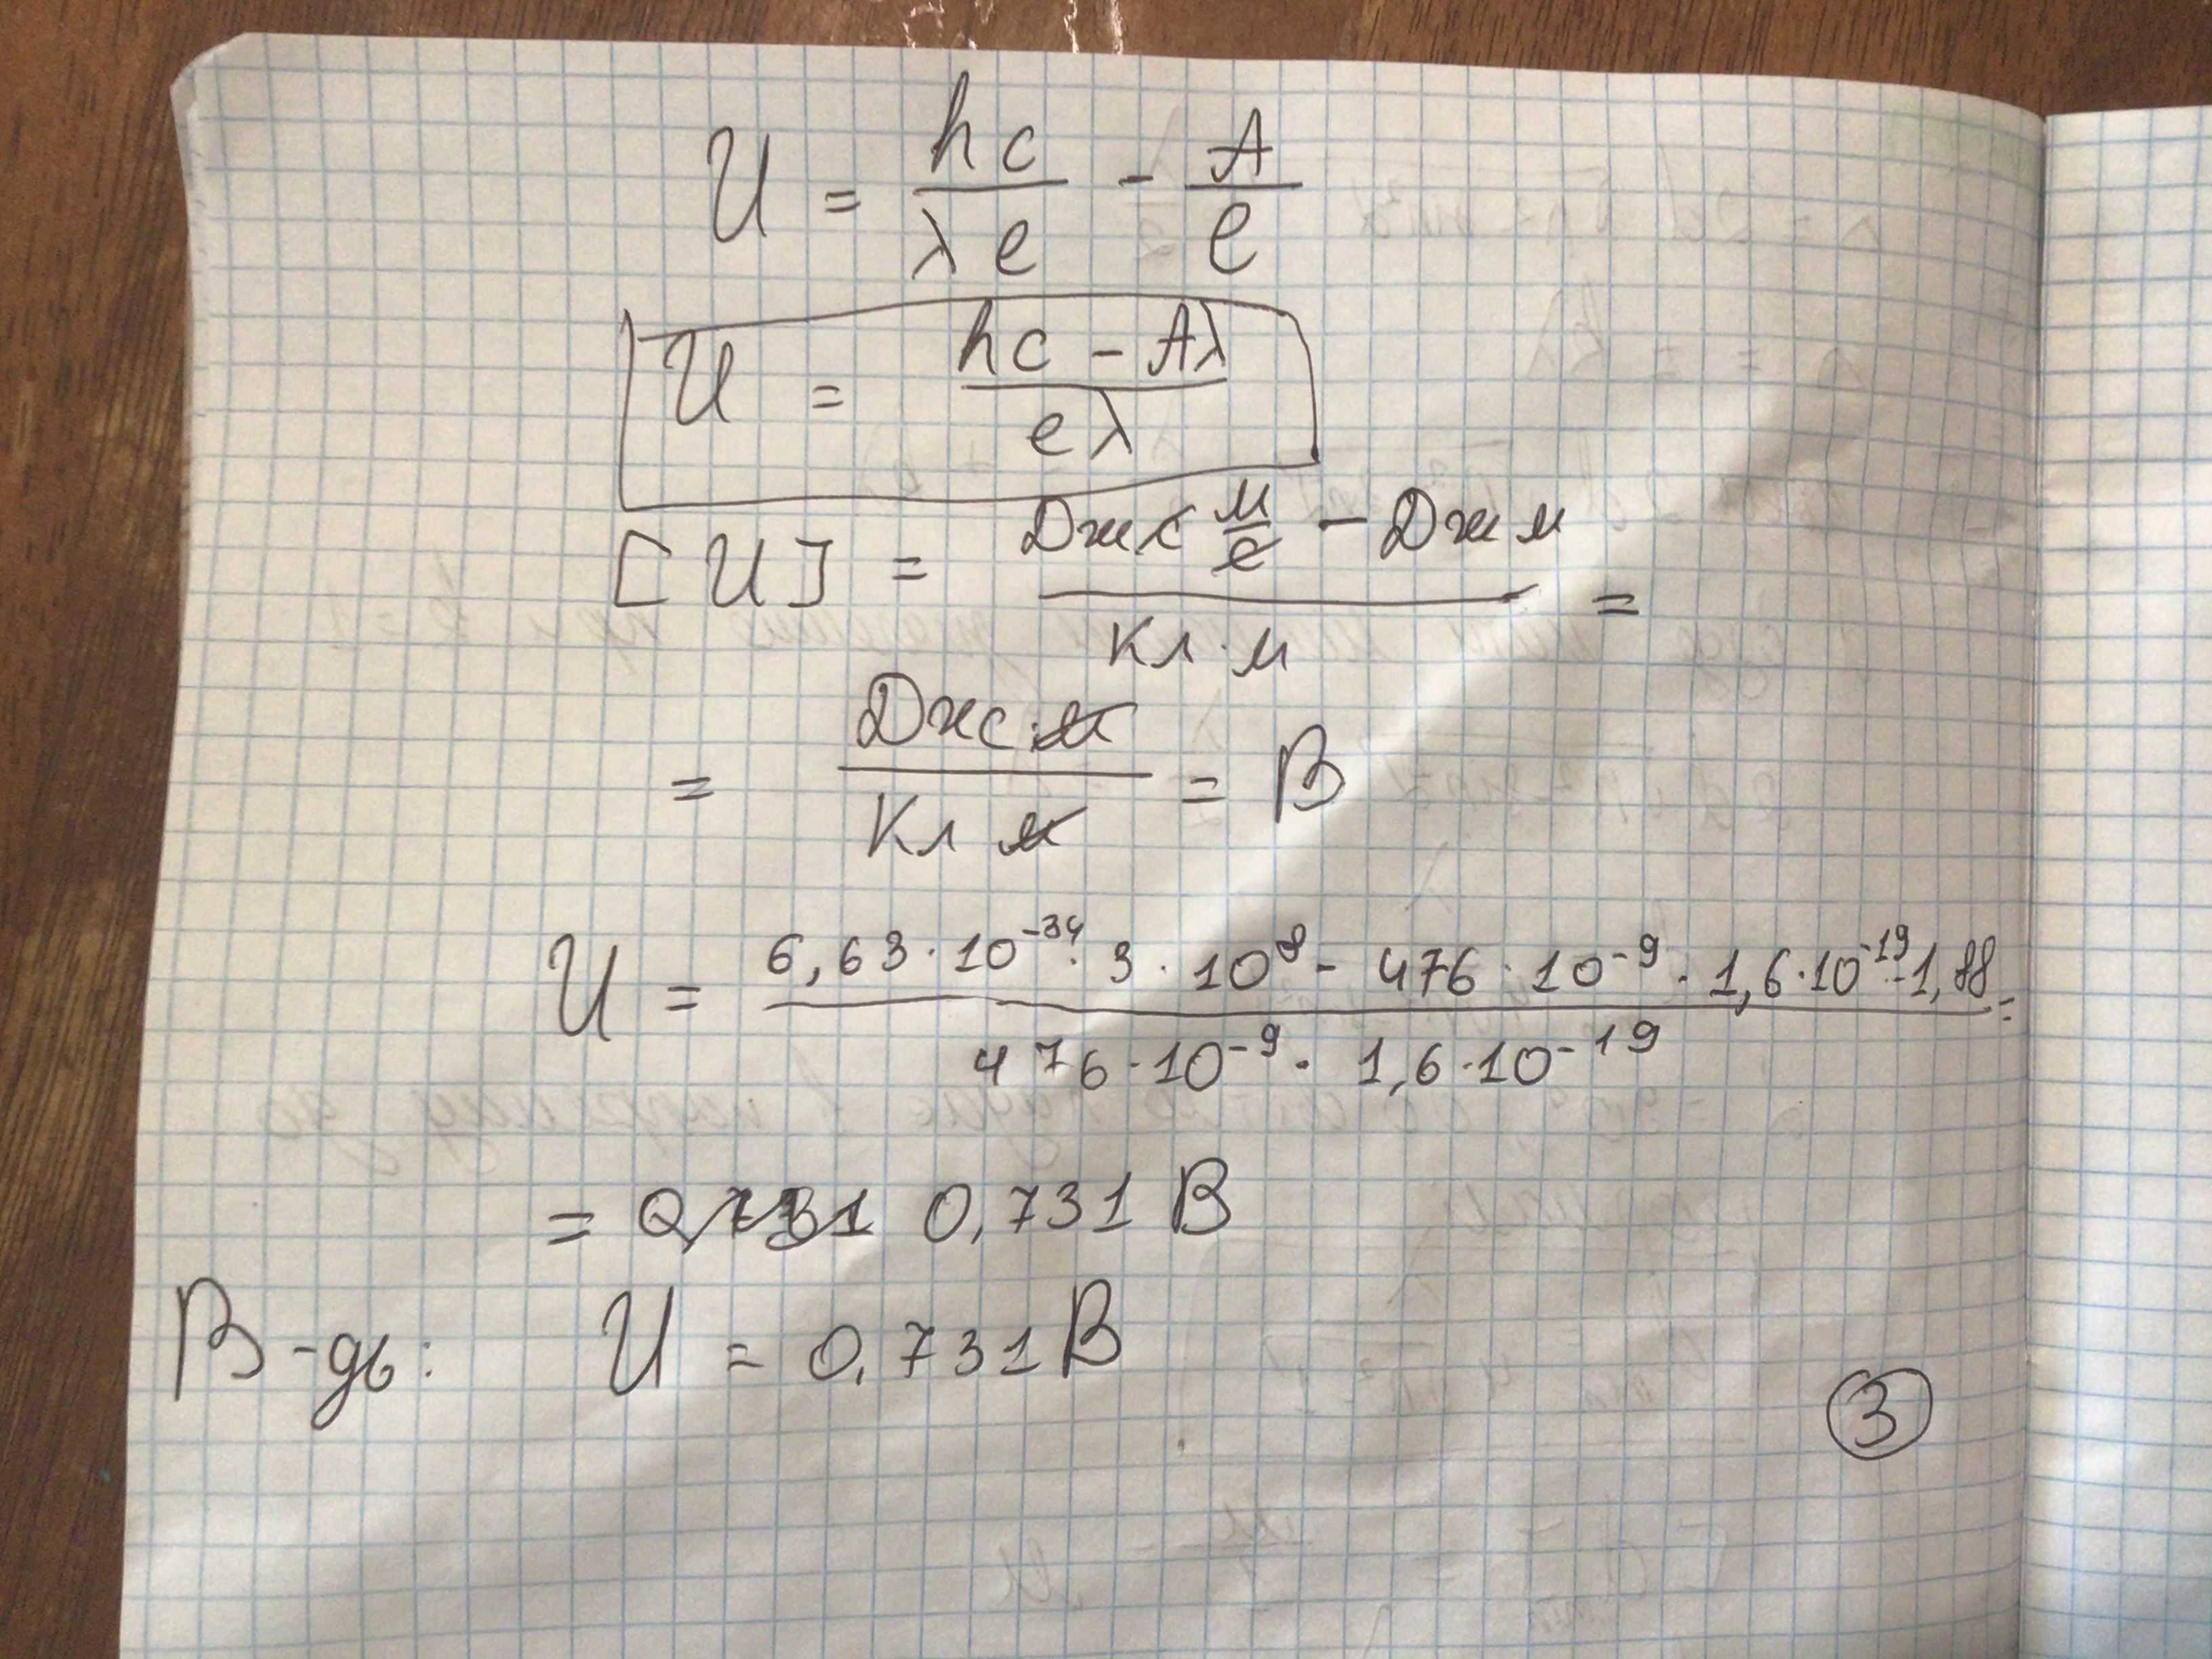 U = hc / λe - A / e
U = hc - Aλ / eλ
[U] = Дж с м/с - Дж м / Кл · м =
= Дж · м / Кл м = В
U = 6,63 · 10⁻³⁴ · 3 · 10⁸ - 476 · 10⁻⁹ · 1,6 · 10⁻¹⁹ · 1,88 / 476 · 10⁻⁹ · 1,6 · 10⁻¹⁹ =
= 0,731 В
В-дь: U = 0,731 В
3